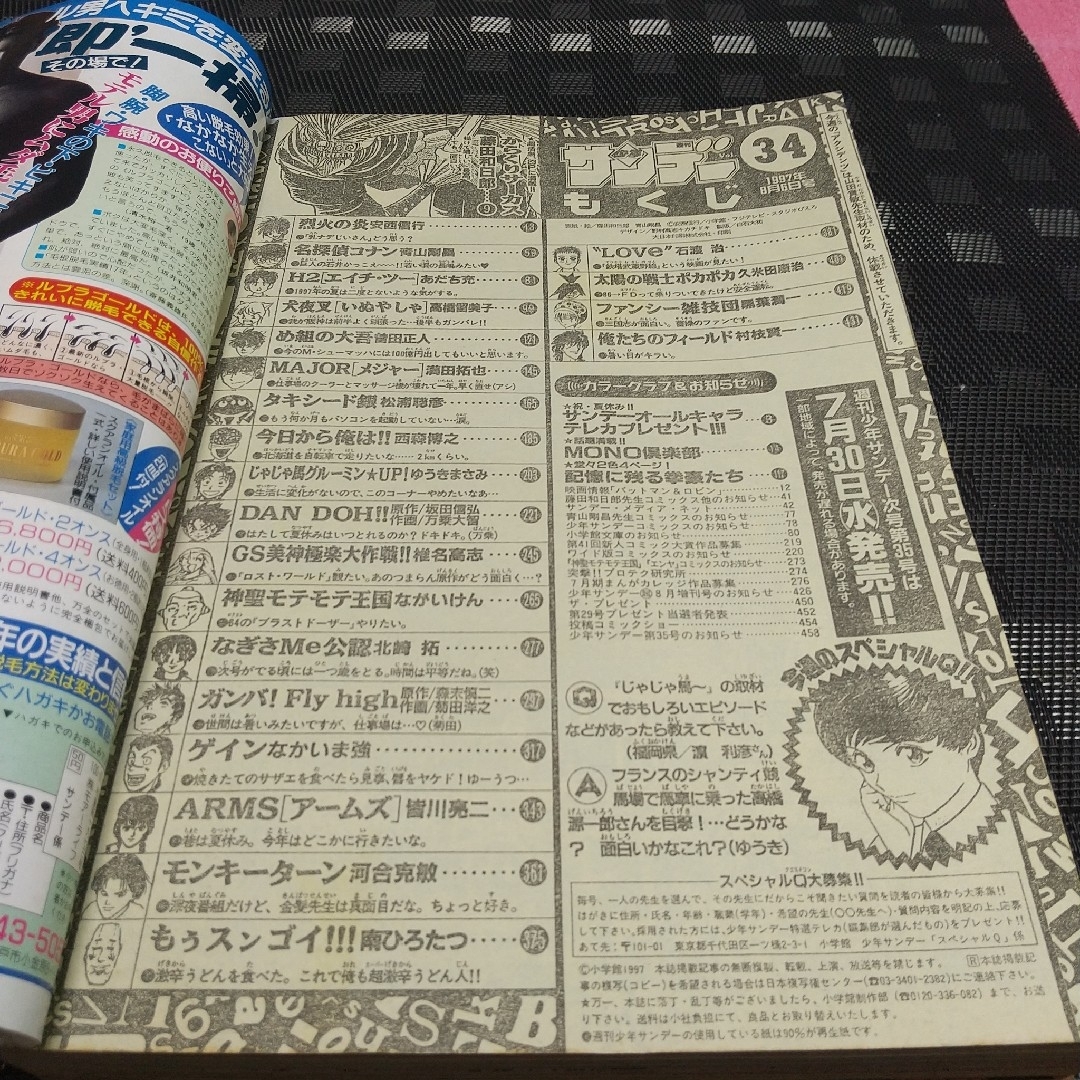 即、一掃
その場で!
感動のお便り
ルプラゴールドは、
きれいに脱毛できる自信作
ゴールド・2オンス
6,800円(送料400円)
ルド・4オンス
,000円(送料600円)
年の実績と
▼ハガキでのお申込み
サンデー係
●商品名
●〒・住所(フリガナ)
からくりサーカス
藤田和日郎…9
週刊
サンデー
もくじ
34
1997年
8月6日号
烈火の炎 安西信行
名探偵コナン 青山剛昌…
H2[エイチ・ツー]あだち充…
●1997年の夏は二度とないような気がする。
犬夜叉[いぬやしゃ]高橋留美子…
め組の大吾 曽田正人…
●今のM・シューマッハには100億円出してもいいと思います。
MAJOR[メジャー]満田拓也…145
●仕事場のクーラーとマッサージ機が壊れて一年。早く直せ(アシ)
タキシード銀 松浦聡彦…165
●もう何か月もパソコンを起動していない…涙。
今日から俺は!! 西森博之…185
●北海道を自転車で走りたいな……2kmくらい。
じゃじゃ馬グルーミン★UP! ゆうきまさみ…203
●生活に変化がないので、このコーナーやめたいなあ…
DAN DOH!! 原作/坂田信弘 作画/万乗大智…221
●はたして夏休みはいつとれるのか?ドキドキ。(万乗)
GS美神極楽大作戦!! 椎名高志…245
●「ロスト・ワールド」観たい。あのつまらん原作がどう面白く…?
神聖モテモテ王国 ながいけん…265
●64の「ブラストドーザー」やりたい。
なぎさMe公認 北崎 拓…277
●次号がでる頃には一つ歳をとる。時間は平等だね。(笑)
ガンバ! Fly high 原作/森末慎二 作画/菊田洋之…297
●世間は暑いみたいですが、仕事場は…♡(菊田)
ゲイン なかいま強…317
●焼きたてのサザエを食べたら見事、唇をヤケド!ゆーうつ…
ARMS[アームズ]皆川亮二…343
●巷は夏休み。今年はどこかに行きたいな。
モンキーターン 河合克敏…361
●深夜番組だけど、金髪先生は真面目だな。ちょっと好き。
もぅスンゴイ!!! 南ひろたつ…375
●激辛うどんを食べた。これで俺も超激辛うどん人!!
“LOVe” 石渡 治…381
太陽の戦士ポカポカ 久米田康治…
ファンシー雑技団 黒葉潤一…419
●三国志が面白い。曹操のファンです。
俺たちのフィールド 村枝賢一…431
●暑い日がキライ。
カラーグラフ&お知らせ
★祝・夏休み!!
サンデーオールキャラ
テレカプレゼント!!!
★話題満載!!
MONO倶楽部
★堂々2色4ページ!
記憶に残る拳豪たち
映画情報「バットマン&ロビン」…12
藤田和日郎先生コミックス他のお知らせ…41
サンデー・メディア・ネット…42
青山剛昌先生コミックスのお知らせ…77
少年サンデーコミックスのお知らせ…78
小学館文庫のお知らせ…80
第41回新人コミック大賞作品募集…219
ワイド版コミックスのお知らせ…220
「神聖モテモテ王国」「エンヤ」コミックスのお知らせ…273
突撃!!プロテク研究所…274
7月期まんがカレッジ作品募集…276
少年サンデー増8月増刊号のお知らせ…426
ザ・プレゼント…450
第29号プレゼント当選者発表…452
投稿コミックショー…454
少年サンデー第35号のお知らせ…458
週刊少年サンデー次号第35号は
7月30日(水)発売!!
一部地域によって発売が遅れる場合があります。
今週のスペシャルQ!!
Q 『じゃじゃ馬〜』の取材
でおもしろいエピソード
などがあったら教えて下さい。
(福岡県/濵 利彦さん)
A フランスのシャンティ競
馬場で馬車に乗った高橋
源一郎さんを目撃!…どうかな
? 面白いかなこれ?(ゆうき)
スペシャルQ大募集!!
毎号、一人の先生を選んで、その先生にだからこそ聞きたい質問を読者の皆様から大募集!!
はがきに住所・氏名・年齢・職業(学年)・希望の先生(〇〇先生へ)・質問内容を明記の上、応募
して下さい。採用された方には、少年サンデー特選テレカ(編集部が選んだもの)をプレゼント!!
あて先:〒101-01 東京都千代田区一ツ橋2-3-1 小学館 少年サンデー「スペシャルQ」係
©小学館1997 本誌掲載記事の無断複製、転載、上演、放送等を禁じます。 R本誌掲載記
事の複写(コピー)を希望される場合は日本複写権センター(☎03-3401-2382)にご連絡下さい。
★万一、本誌に落丁・乱丁等がございましたら、小学館制作部(☎0120-336-082)まで、お送
り下さい。送料は小社負担にて、良品とお取り替えいたします。
●週刊少年サンデーの使用している紙は90%が再生紙です。